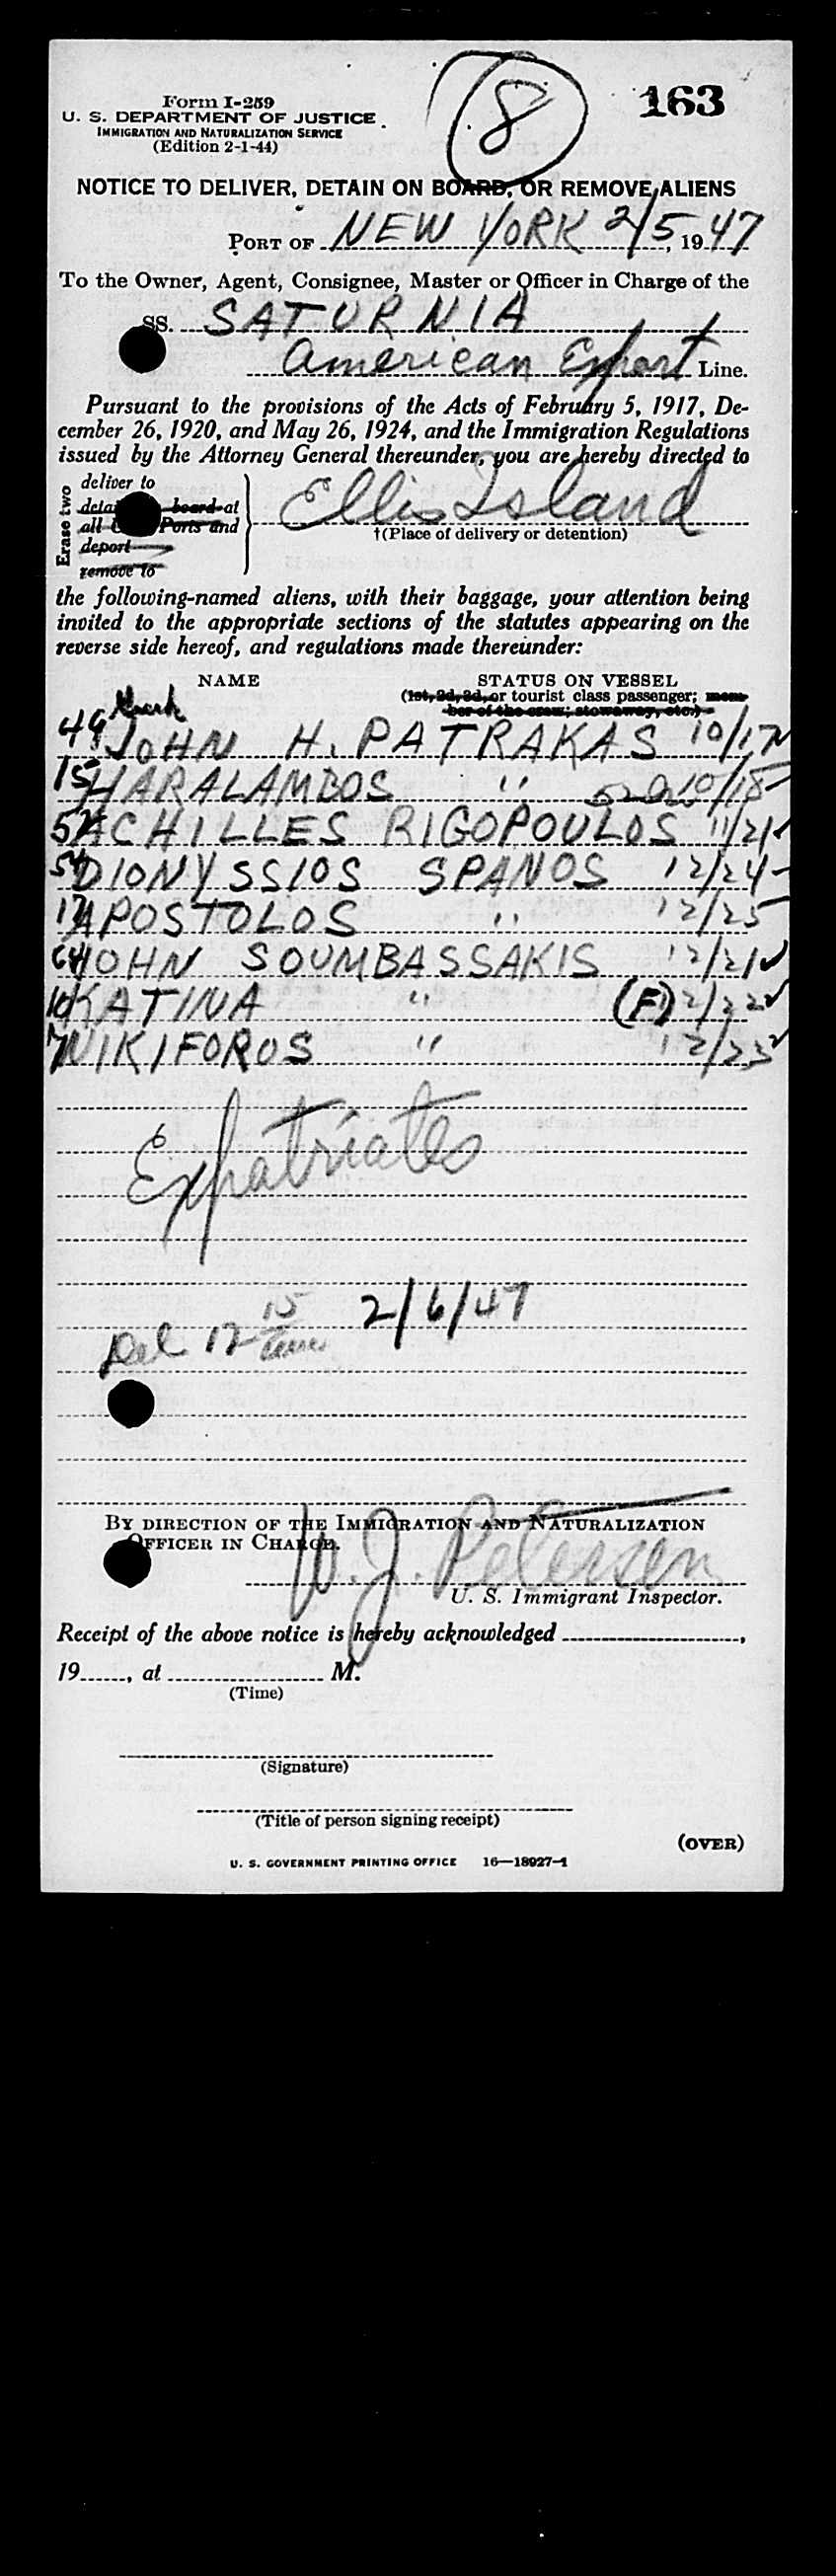 Form I-259
U. S. DEPARTMENT OF JUSTICE
IMMIGRATION AND NATURALIZATION SERVICE
(Edition 2-1-44)
8
163
NOTICE TO DELIVER, DETAIN ON BOARD, OR REMOVE ALIENS
PORT OF NEW YORK 2/5, 1947
To the Owner, Agent, Consignee, Master or Officer in Charge of the
SS. SATURNIA
American Export Line.
Pursuant to the provisions of the Acts of February 5, 1917, De-
cember 26, 1920, and May 26, 1924, and the Immigration Regulations
issued by the Attorney General thereunder, you are hereby directed to
Erase two
deliver to
board at
all Ports and
deport
remove to
Ellis Island
†(Place of delivery or detention)
the following-named aliens, with their baggage, your attention being
invited to the appropriate sections of the statutes appearing on the
reverse side hereof, and regulations made thereunder:
NAME STATUS ON VESSEL
(1st, 2d, 3d, or tourist class passenger; mem-
ber of the crew; stowaway, etc.)
Greek
JOHN H. PATRAKAS 10/17
15 HARALAMBOS " 10/18
52 ACHILLES RIGOPOULOS 11/21
54 DIONYSSIOS SPANOS 12/24
17 APOSTOLOS " 12/25
64 JOHN SOUMBASSAKIS 12/21
10 KATINA " (F) 12/22
7 NIKIFOROS " 12/23
Expatriates
Del 12 15 2/6/47
BY DIRECTION OF THE IMMIGRATION AND NATURALIZATION
OFFICER IN CHARGE.
W. J. Petersen
U. S. Immigrant Inspector.
Receipt of the above notice is hereby acknowledged ,
19 , at M.
(Time)
(Signature)
(Title of person signing receipt)
(OVER)
U. S. GOVERNMENT PRINTING OFFICE 16—18927-1